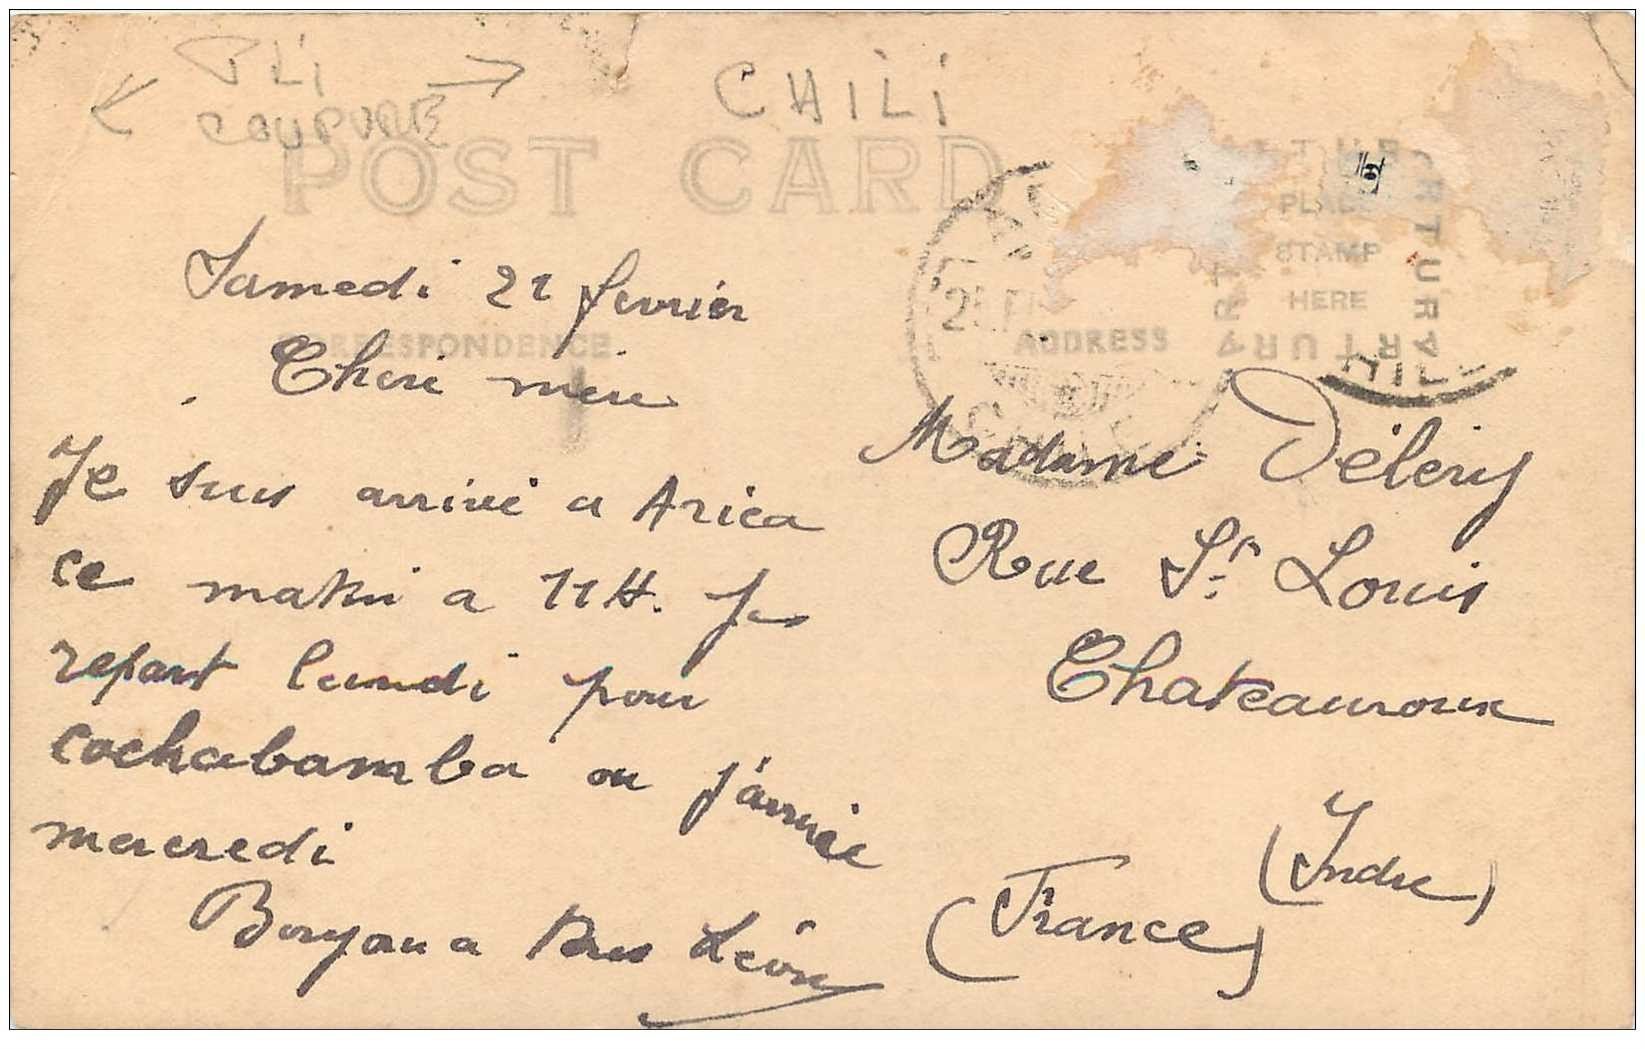 PLI
COUPURE
CHILI
POST CARD
PLACE
STAMP
HERE
ARTURA
CORRESPONDENCE
ADDRESS
Samedi 21 fevrier
Cheri mère
Je suis arrivé a Arica
ce matin a 11H. Je
repart lundi pour
cochabamba ou j'arrive
mercredi
Léon
Madame Délery
Rue St. Louis
Chateauroux
(Indre)
(France)